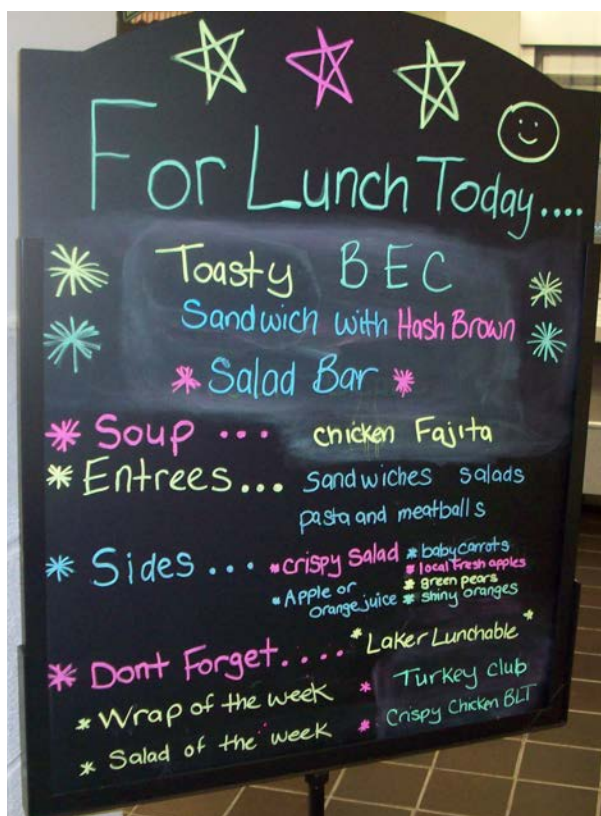 For Lunch Today....
Toasty BEC
Sandwich with Hash Brown
Salad Bar
Soup ... chicken Fajita
Entrees... sandwiches salads
pasta and meatballs
Sides ... crispy salad
Apple or
orange juice
baby carrots
local fresh apples
green pears
shiny oranges
Dont Forget.... Laker Lunchable
Wrap of the week
Turkey Club
Salad of the week
Crispy Chicken BLT